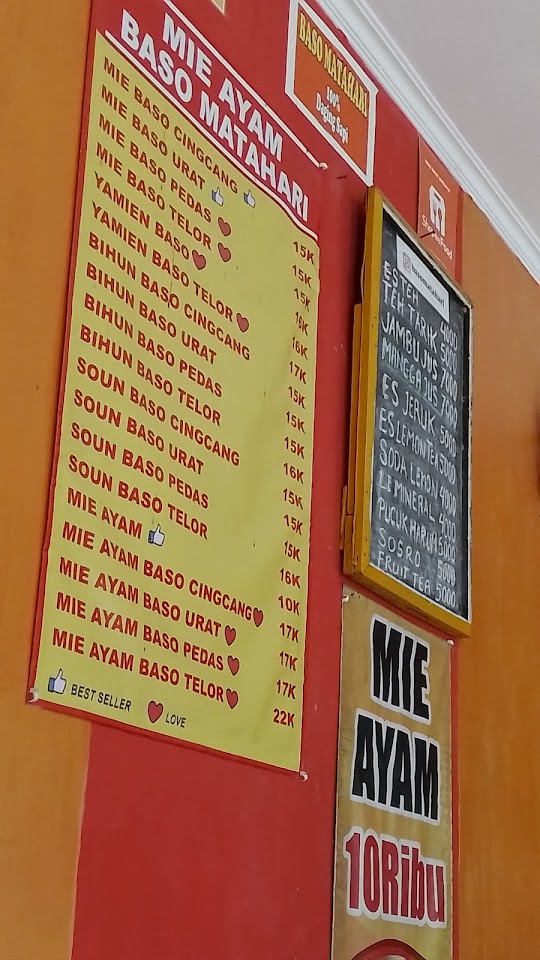 MIE AYAM
BASO MATAHARI
MIE BASO CINGCANG 15K
MIE BASO URAT 15K
MIE BASO PEDAS 15K
MIE BASO TELOR 16K
YAMIEN BASO 16K
YAMIEN BASO TELOR 17K
BIHUN BASO CINGCANG 15K
BIHUN BASO URAT 15K
BIHUN BASO PEDAS 15K
BIHUN BASO TELOR 16K
SOUN BASO CINGCANG 15K
SOUN BASO URAT 15K
SOUN BASO PEDAS 15K
SOUN BASO TELOR 16K
MIE AYAM 10K
MIE AYAM BASO CINGCANG 17K
MIE AYAM BASO URAT 17K
MIE AYAM BASO PEDAS 17K
MIE AYAM BASO TELOR 22K
BEST SELLER LOVE
BASO MATAHARI
100%
Daging Sapi
ShopeeFood
basomatahari
ES TEH 4000
TEH TARIK 5000
JAMBU JUS 7000
MANGGA JUS 7000
ES JERUK 5000
ES LEMON TEA 5000
SODA LEMON 4000
LE MINERAL 4000
PUCUK HARUM 5000
SOSRO 5000
FRUIT TEA 5000
MIE
AYAM
10Ribu